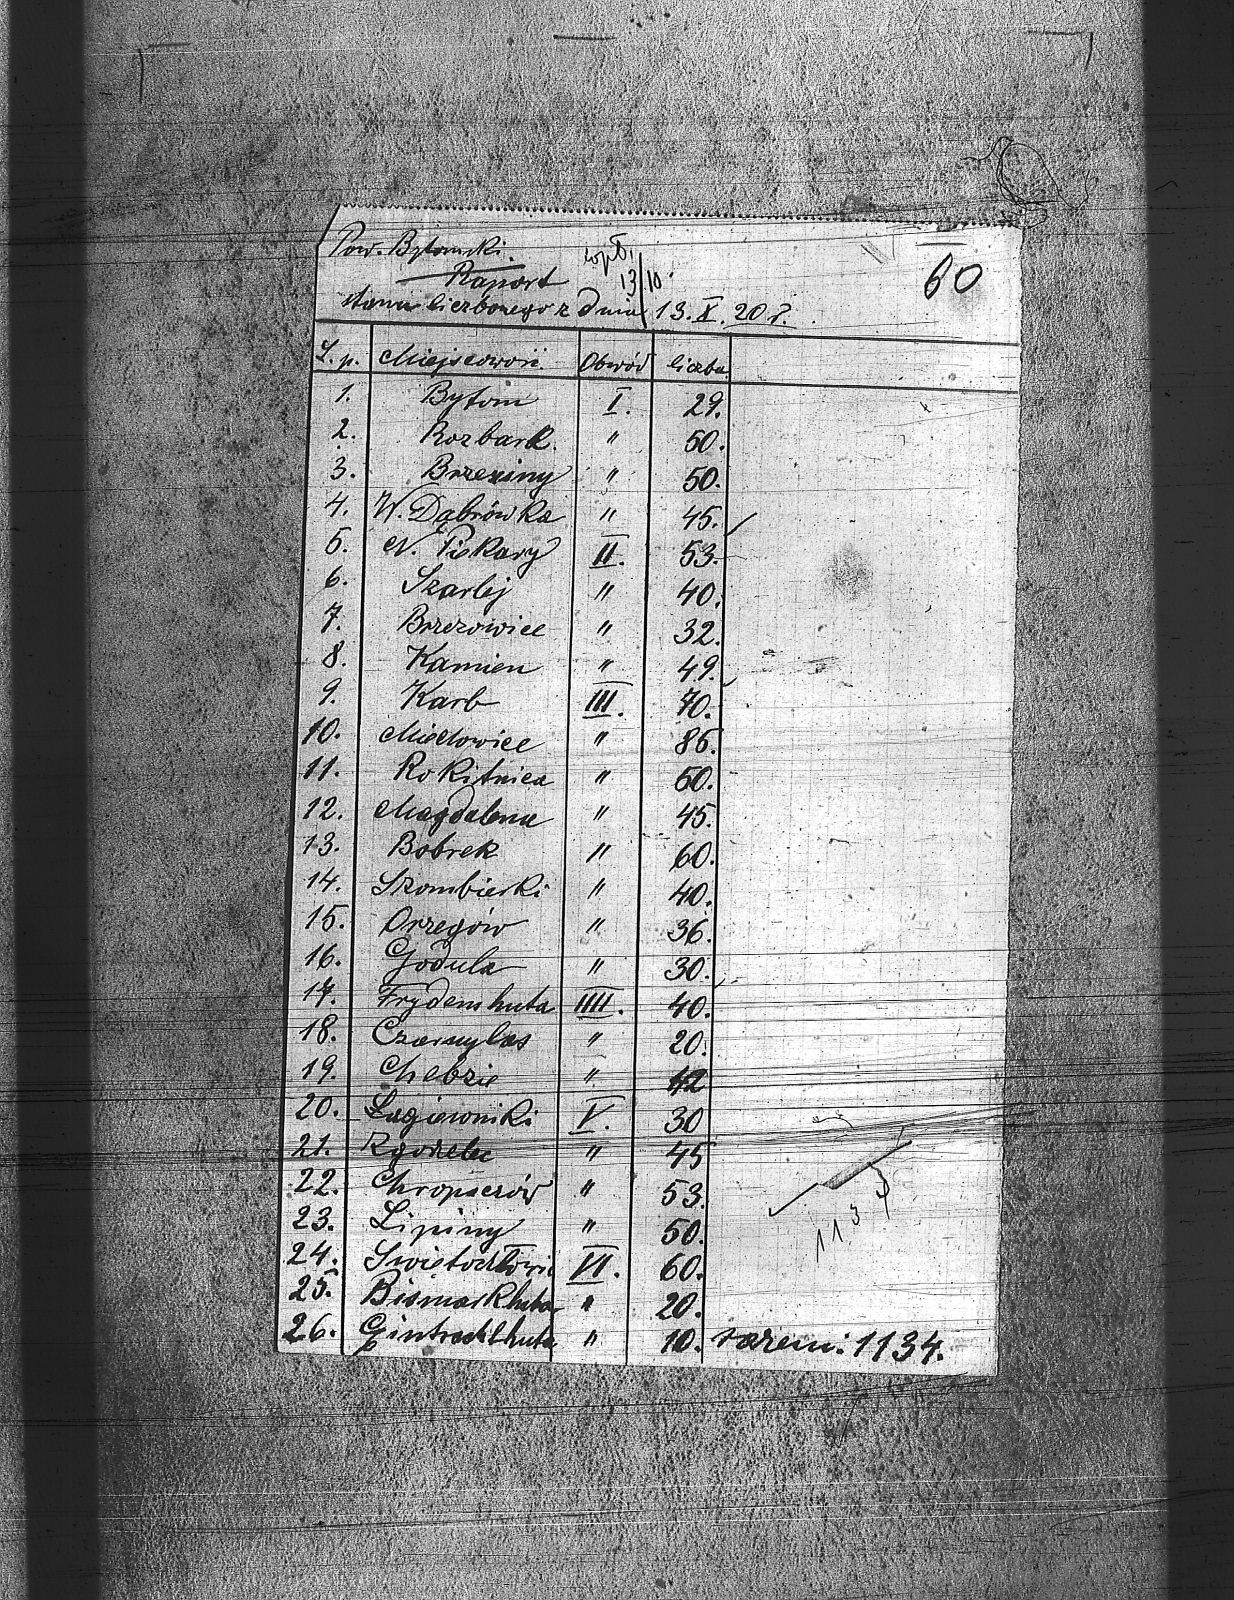 Pow. Bytomski.
wpł. 13/10
60
Raport
stanu liczbowego z dnia 13. X. 20 r.
L. p. Miejscowość. Obwód liczba
1. Bytom I. 29.
2. Rozbark. " 50.
3. Brzeziny " 50.
4. W. Dąbrówka " 45.
5. N. Piekary II. 53.
6. Szarlej " 40.
7. Brzezowice " 32.
8. Kamien " 49.
9. Karb III. 70.
10. Miechowice " 85.
11. Rokitnica " 50.
12. Magdalena " 45.
13. Bobrek " 60.
14. Szombierki " 40.
15. Orzegów " 36.
16. Godula " 30.
17. Frydenshuta IIII. 40.
18. Czarnylas " 20.
19. Chebzie " 42
20. Łagiewniki V. 30
21. Zgorzelec " 45
22. Chropaczów " 53.
23. Lipiny " 50.
24. Swietochłowic VI. 60.
25. Bismarkhuta " 20.
26. Eintrachthuta " 10. razem: 1134.